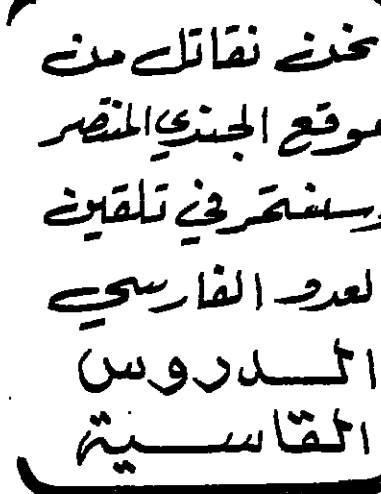 نحن نقاتل من
موقع الجندي المنتصر
وسنستمر في تلقين
لعدو الفارسي
الـــدروس
القاســـية